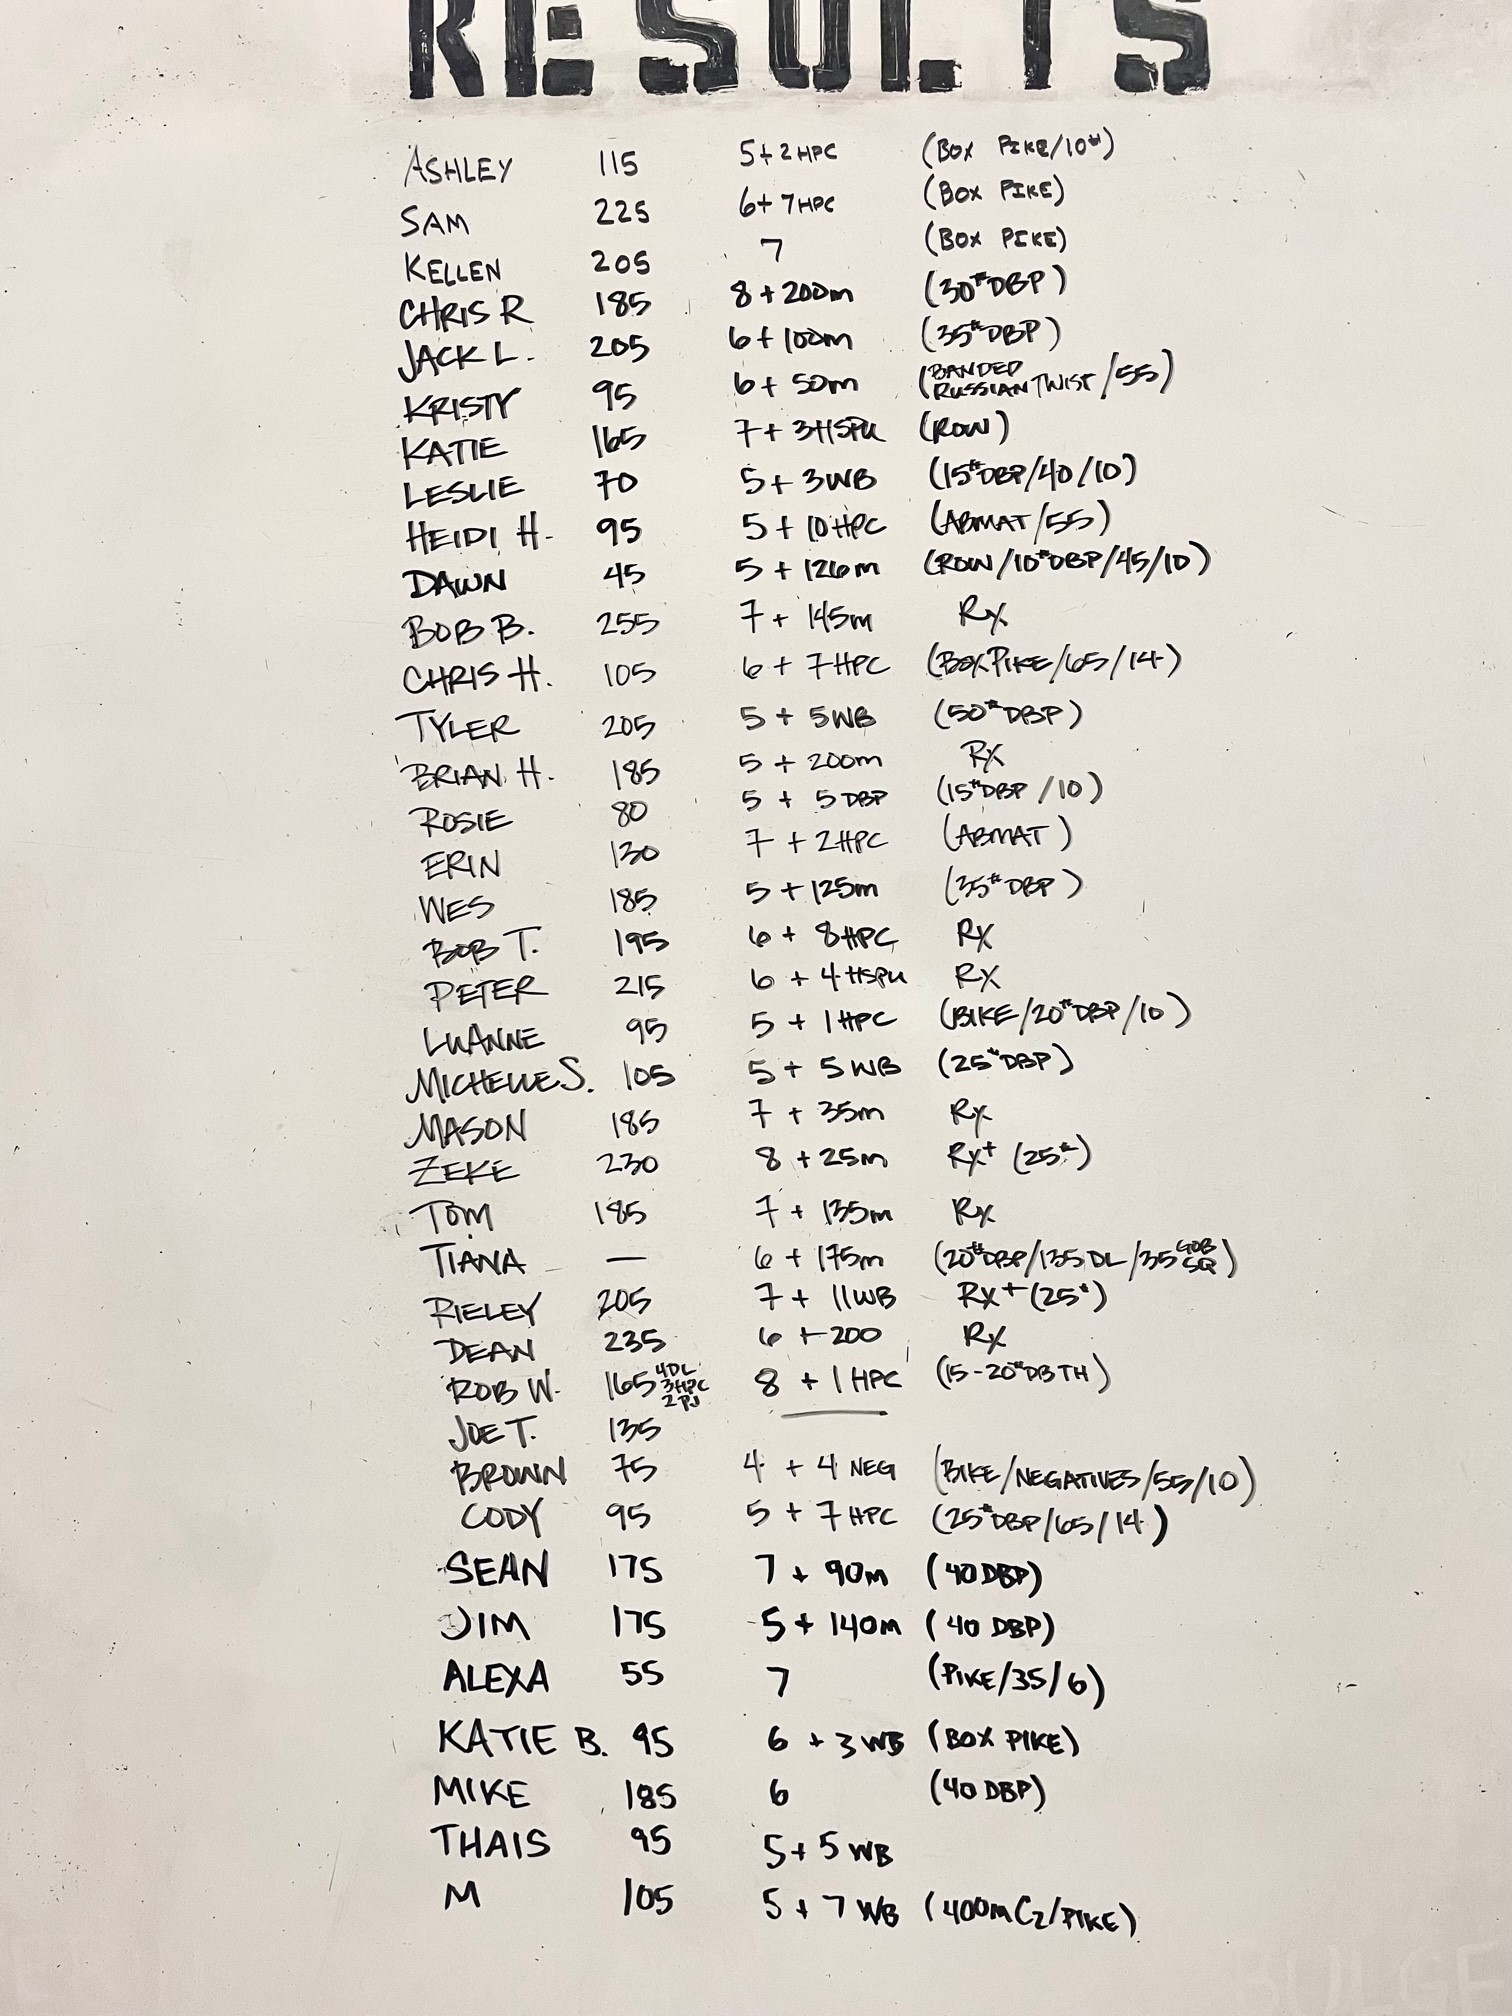 RESULTS
ASHLEY 115 5+2HPC (BOX PIKE/10#)
SAM 225 6+7HPC (BOX PIKE)
KELLEN 205 7 (BOX PIKE)
CHRIS R 185 8+200m (30#DBP)
JACK L. 205 6+100m (35#DBP)
KRISTY 95 6+50m (BANDED RUSSIAN TWIST/55)
KATIE 165 7+3HSPU (ROW)
LESLIE 70 5+3WB (15#DBP/40/10)
HEIDI H. 95 5+10HPC (ABMAT/55)
DAWN 45 5+126m (ROW/10#DBP/45/10)
BOB B. 255 7+145m Rx
CHRIS H. 105 6+7HPC (BOX PIKE/65/14)
TYLER 205 5+5WB (50#DBP)
BRIAN H. 185 5+200m Rx
ROSIE 80 5+5DBP (15#DBP/10)
ERIN 130 7+2HPC (ABMAT)
WES 185 5+125m (35#DBP)
BOB T. 195 6+8HPC Rx
PETER 215 6+4HSPU Rx
LUANNE 95 5+1HPC (BIKE/20#DBP/10)
MICHELLE S. 105 5+5WB (25#DBP)
MASON 185 7+35m Rx
ZEKE 230 8+25m Rx+ (25#)
TOM 185 7+135m Rx
TIANA — 6+175m (20#DBP/135DL/35 GOB SQ)
RIELEY 205 7+11WB Rx+(25#)
DEAN 235 6+200 Rx
ROB W. 165 4DL 3HPC 2PJ 8+1HPC (15-20#DBTH)
JOE T. 135
BROWN 75 4+4 NEG (BIKE/NEGATIVES/55/10)
CODY 95 5+7HPC (25#DBP/65/14)
SEAN 175 7+90m (40DBP)
JIM 175 5+140m (40 DBP)
ALEXA 55 7 (PIKE/35/6)
KATIE B. 95 6+3WB (BOX PIKE)
MIKE 185 6 (40 DBP)
THAIS 95 5+5WB
M 105 5+7WB (400mC2/PIKE)